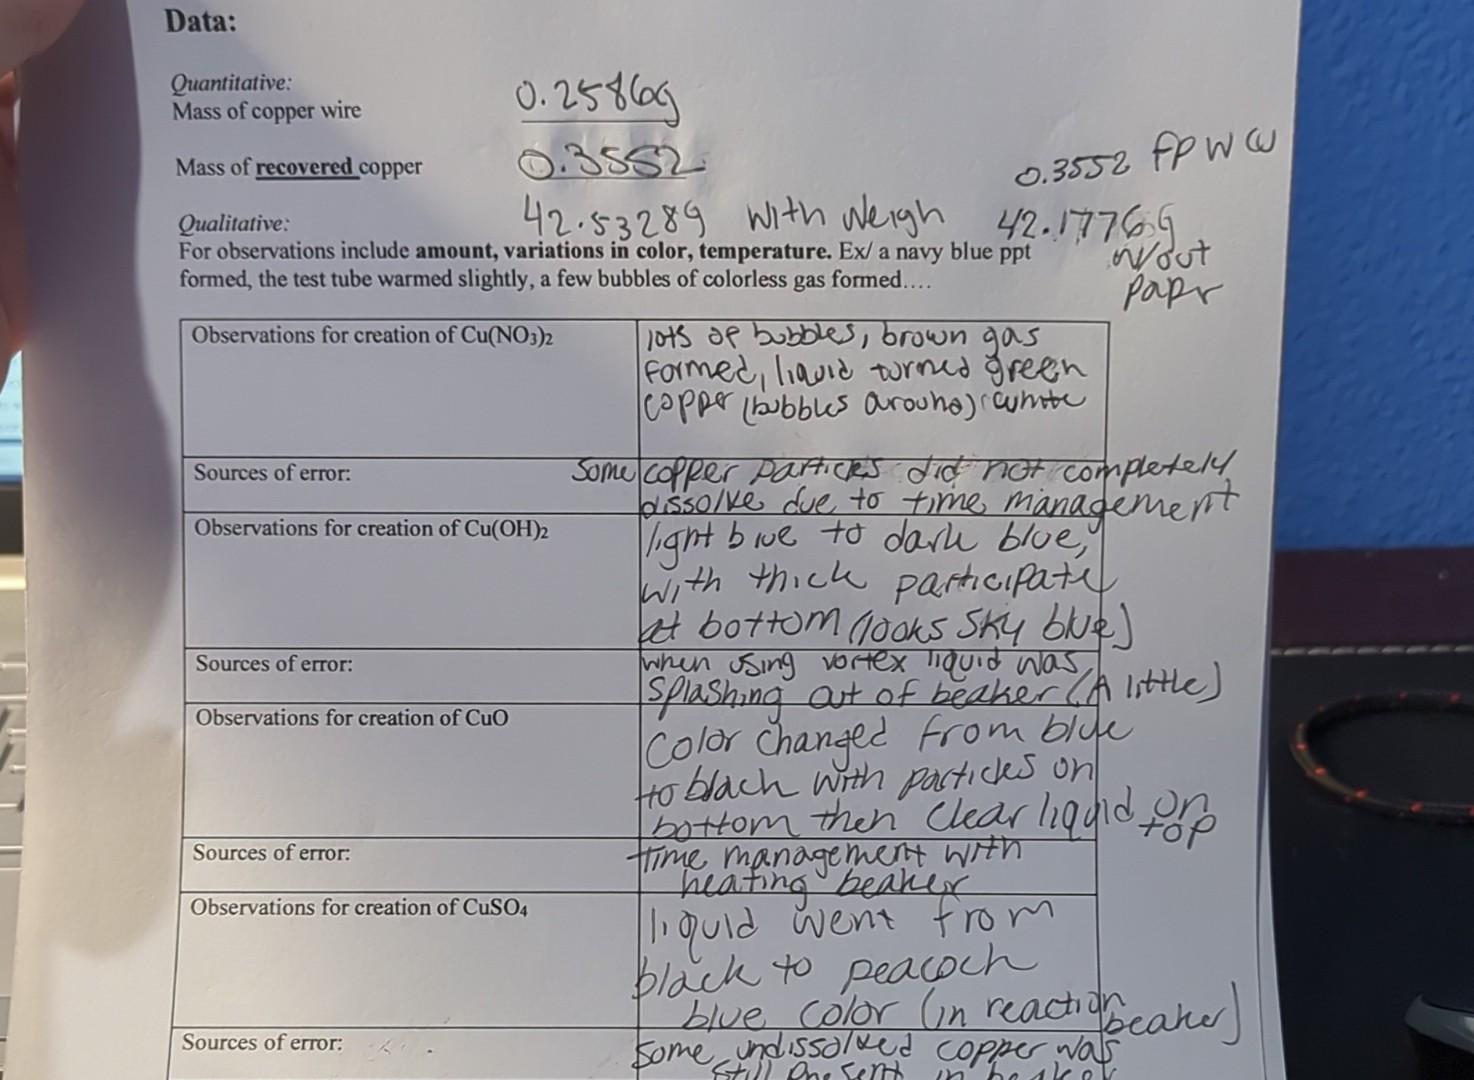 Data:
Quantitative:
Mass of copper wire 0.2586g
Mass of recovered copper 0.3552
0.3552 fp w cu
Qualitative: 42.5328g with weigh 42.1776g
w/out
papr
For observations include amount, variations in color, temperature. Ex/ a navy blue ppt
formed, the test tube warmed slightly, a few bubbles of colorless gas formed….
Observations for creation of Cu(NO3)2 lots of bubbles, brown gas
formed, liquid turned green
copper (bubbles around)
Sources of error: Some copper particles did not completely
dissolve due to time management
Observations for creation of Cu(OH)2 light blue to dark blue,
with thick participate
at bottom (looks sky blue)
Sources of error: when using vortex liquid was
splashing out of beaker (A little)
Observations for creation of CuO Color changed from blue
to black with particles on
bottom then clear liquid on
top
Sources of error: time management with
heating beaker
Observations for creation of CuSO4 liquid went from
black to peacock
blue color (in reaction
beaker)
Sources of error: Some undissolved copper was
still present in beaker